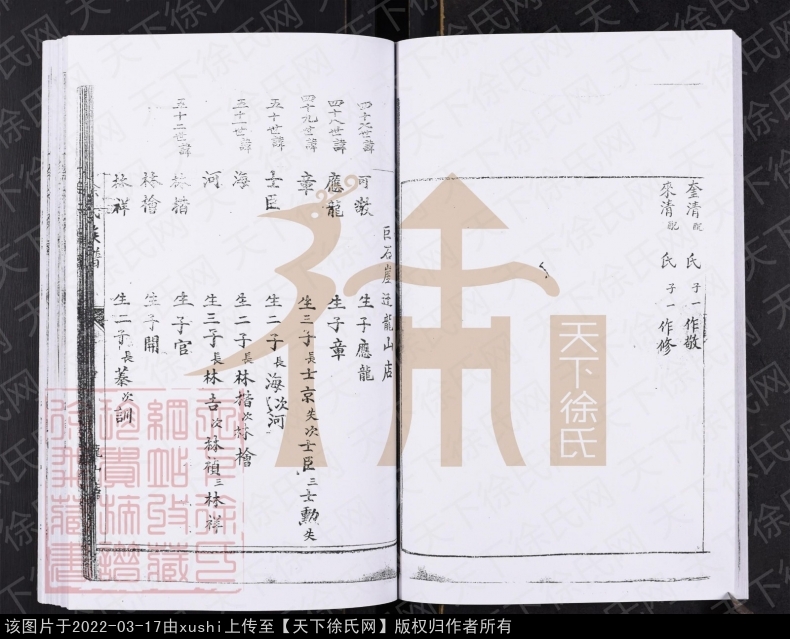 奎清配 氏 子一作敬
來清配 氏 子一作修
巨石崖迁龍山店
四十七世諱 可敬 生子應龍
四十八世諱 應龍 生子章
四十九世諱 章 生三子長士京失次士臣三士勲失
五十世諱 士臣 生二子長海次河
五十一世諱 海 生二子長林楷次林檜
河 生三子長林吉次林禎三林祥
五十二世諱 林楷 生子官
林檜 生子開
林祥 生二子長綦次訓
徐氏族譜
龍山店
天下徐氏
天下徐氏网
该图片于2022-03-17由xushi上传至【天下徐氏网】版权归作者所有